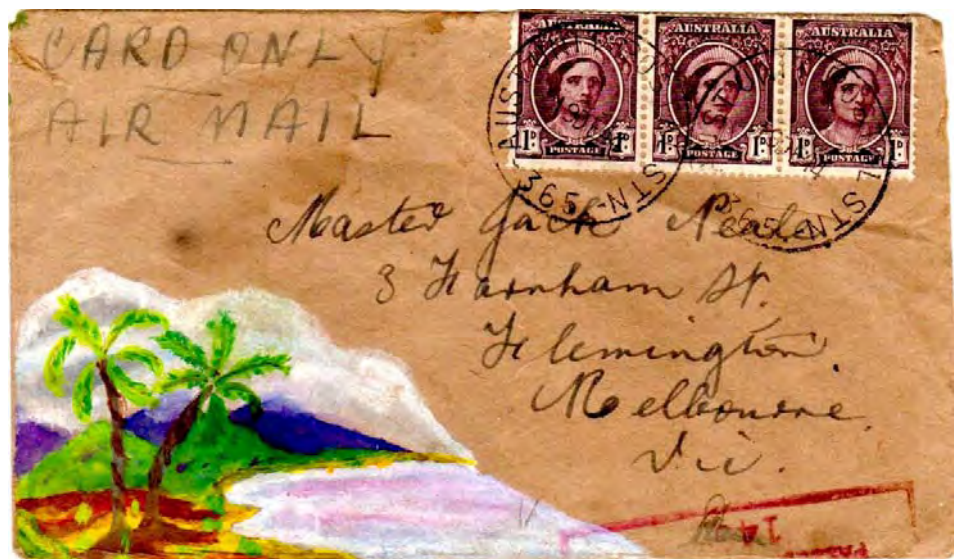 CARD ONLY
AIR MAIL
AUSTRALIA AUSTRALIA AUSTRALIA
1D POSTAGE 1D 1D POSTAGE 1D 1D POSTAGE 1D
AUST
STN-365
STN-365
Master Jack Neale
3 Farnham St.
Flemington
Melbourne.
Vic.
14